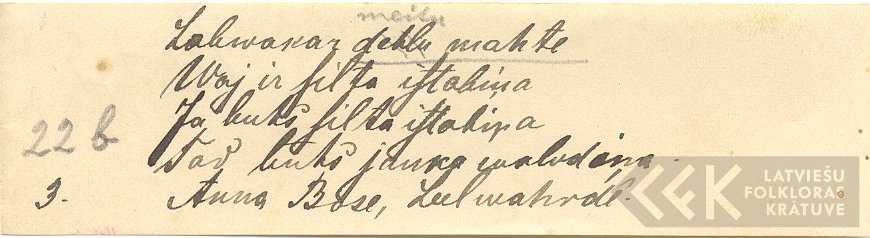 meitu
Labwakar dehlu mahte
Waj ir silta istabiņa
Ja buhs silta istabiņa
22 b
Tad buhs jauka walodiņa.
3. Anna Bose, Leelwahrd.
LATVIEŠU
FOLKLORAS
KRĀTUVE